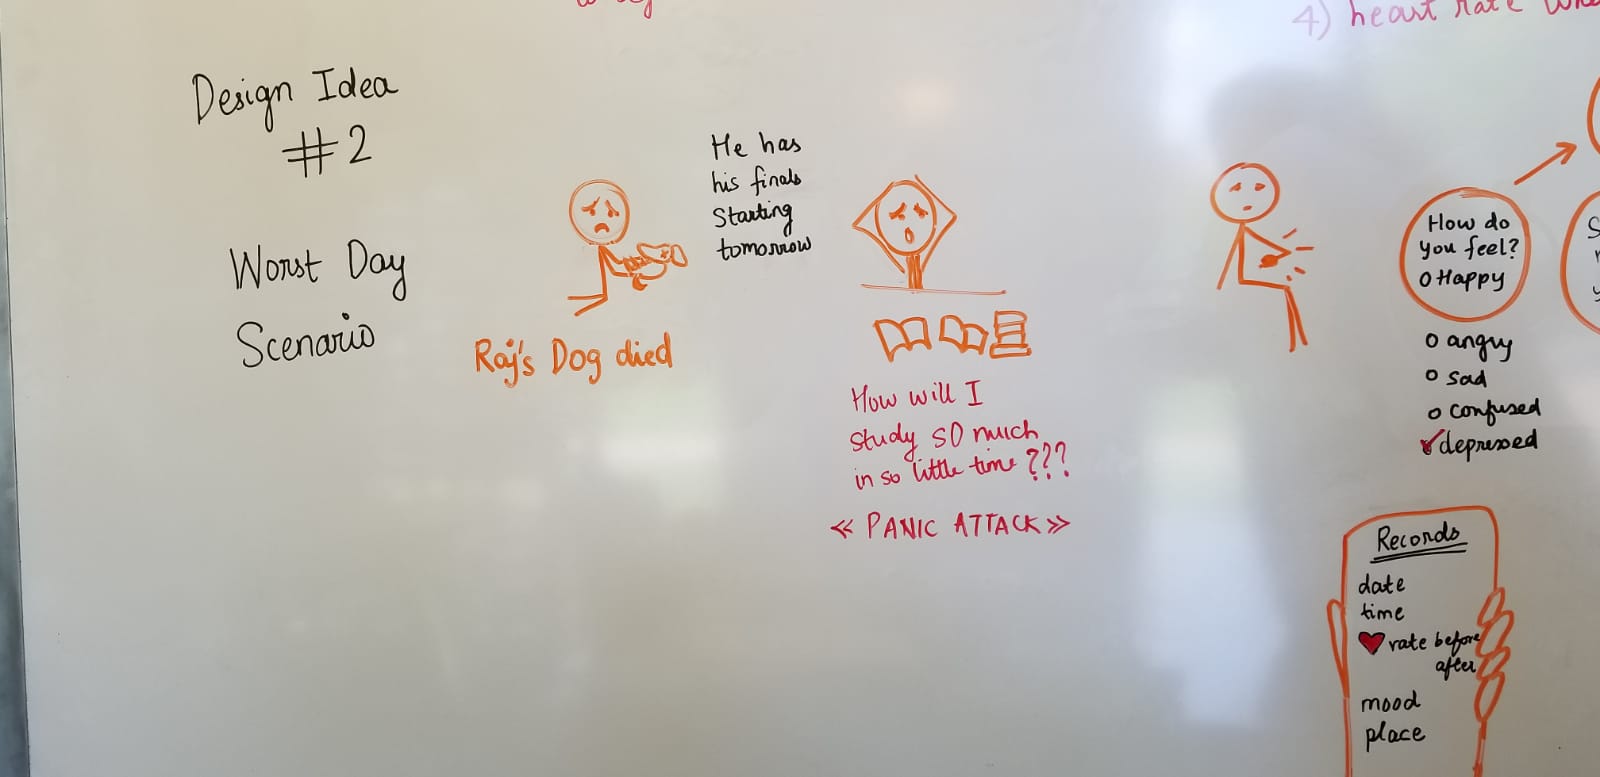 4) heart rate
Design Idea
#2
Worst Day
Scenario
Raj's Dog died
He has
his finals
Starting
tomorrow
How will I
study so much
in so little time ???
<< PANIC ATTACK >>
How do
you feel?
o Happy
o angry
o sad
o confused
✓ depressed
Records
date
time
♥ rate before
after
mood
place